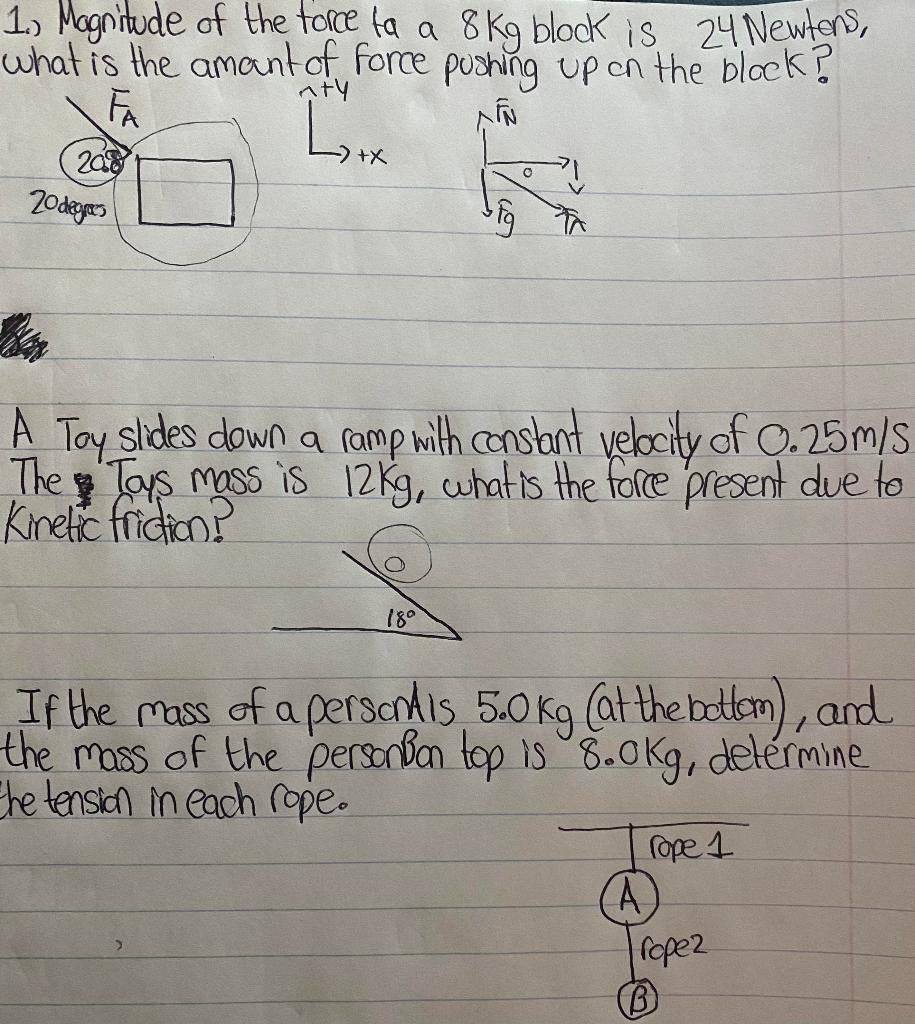 1., Magnitude of the force to a 8kg block is 24 Newtons,
what is the amount of force pushing up on the block?
FA
+y
+x
20 degrees
FN
Fg
FA
A Toy slides down a ramp with constant velocity of 0.25m/s
The Toys mass is 12kg, what is the force present due to
Kinetic friction?
18°
If the mass of a person A is 5.0kg (at the bottom), and
the mass of the person B on top is 8.0kg, determine
the tension in each rope.
rope 1
A
rope2
B